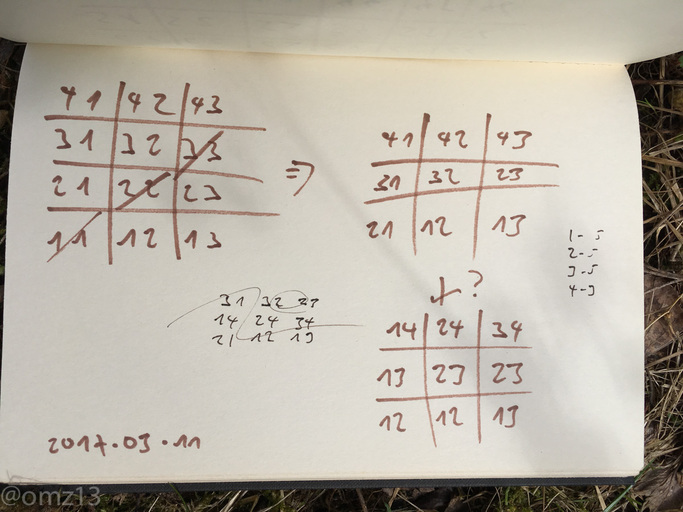 41 42 43
31 32 33
21 22 23
11 12 13
⇒
41 42 43
31 32 23
21 12 13
?
14 24 34
13 23 23
12 12 13
1 - 5
2 - 5
3 - 5
4 - 3
31 32 23
14 24 34
21 12 13
2017.03.11
@omz13